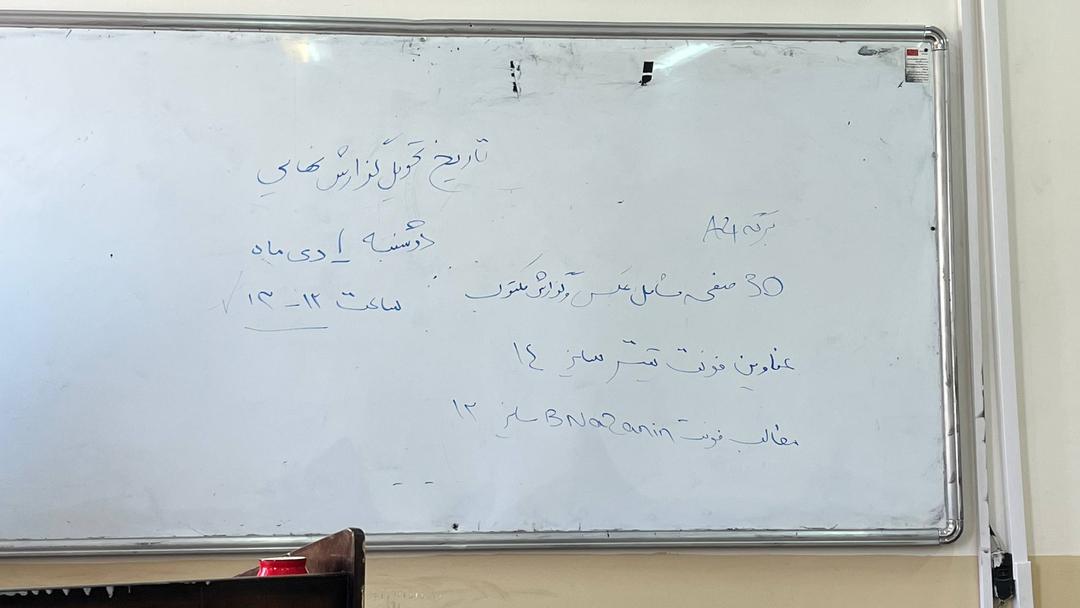 تاریخ تحویل گزارش نهایی
دوشنبه 1 دی ماه
ساعت ۱۲ - ۱۳
برگه A4
30 صفحه شامل عکس و گزارش مکتوب
عناوین فونت تیتر سایز ۱٤
مطالب فونت BNazanin سایز ۱۲